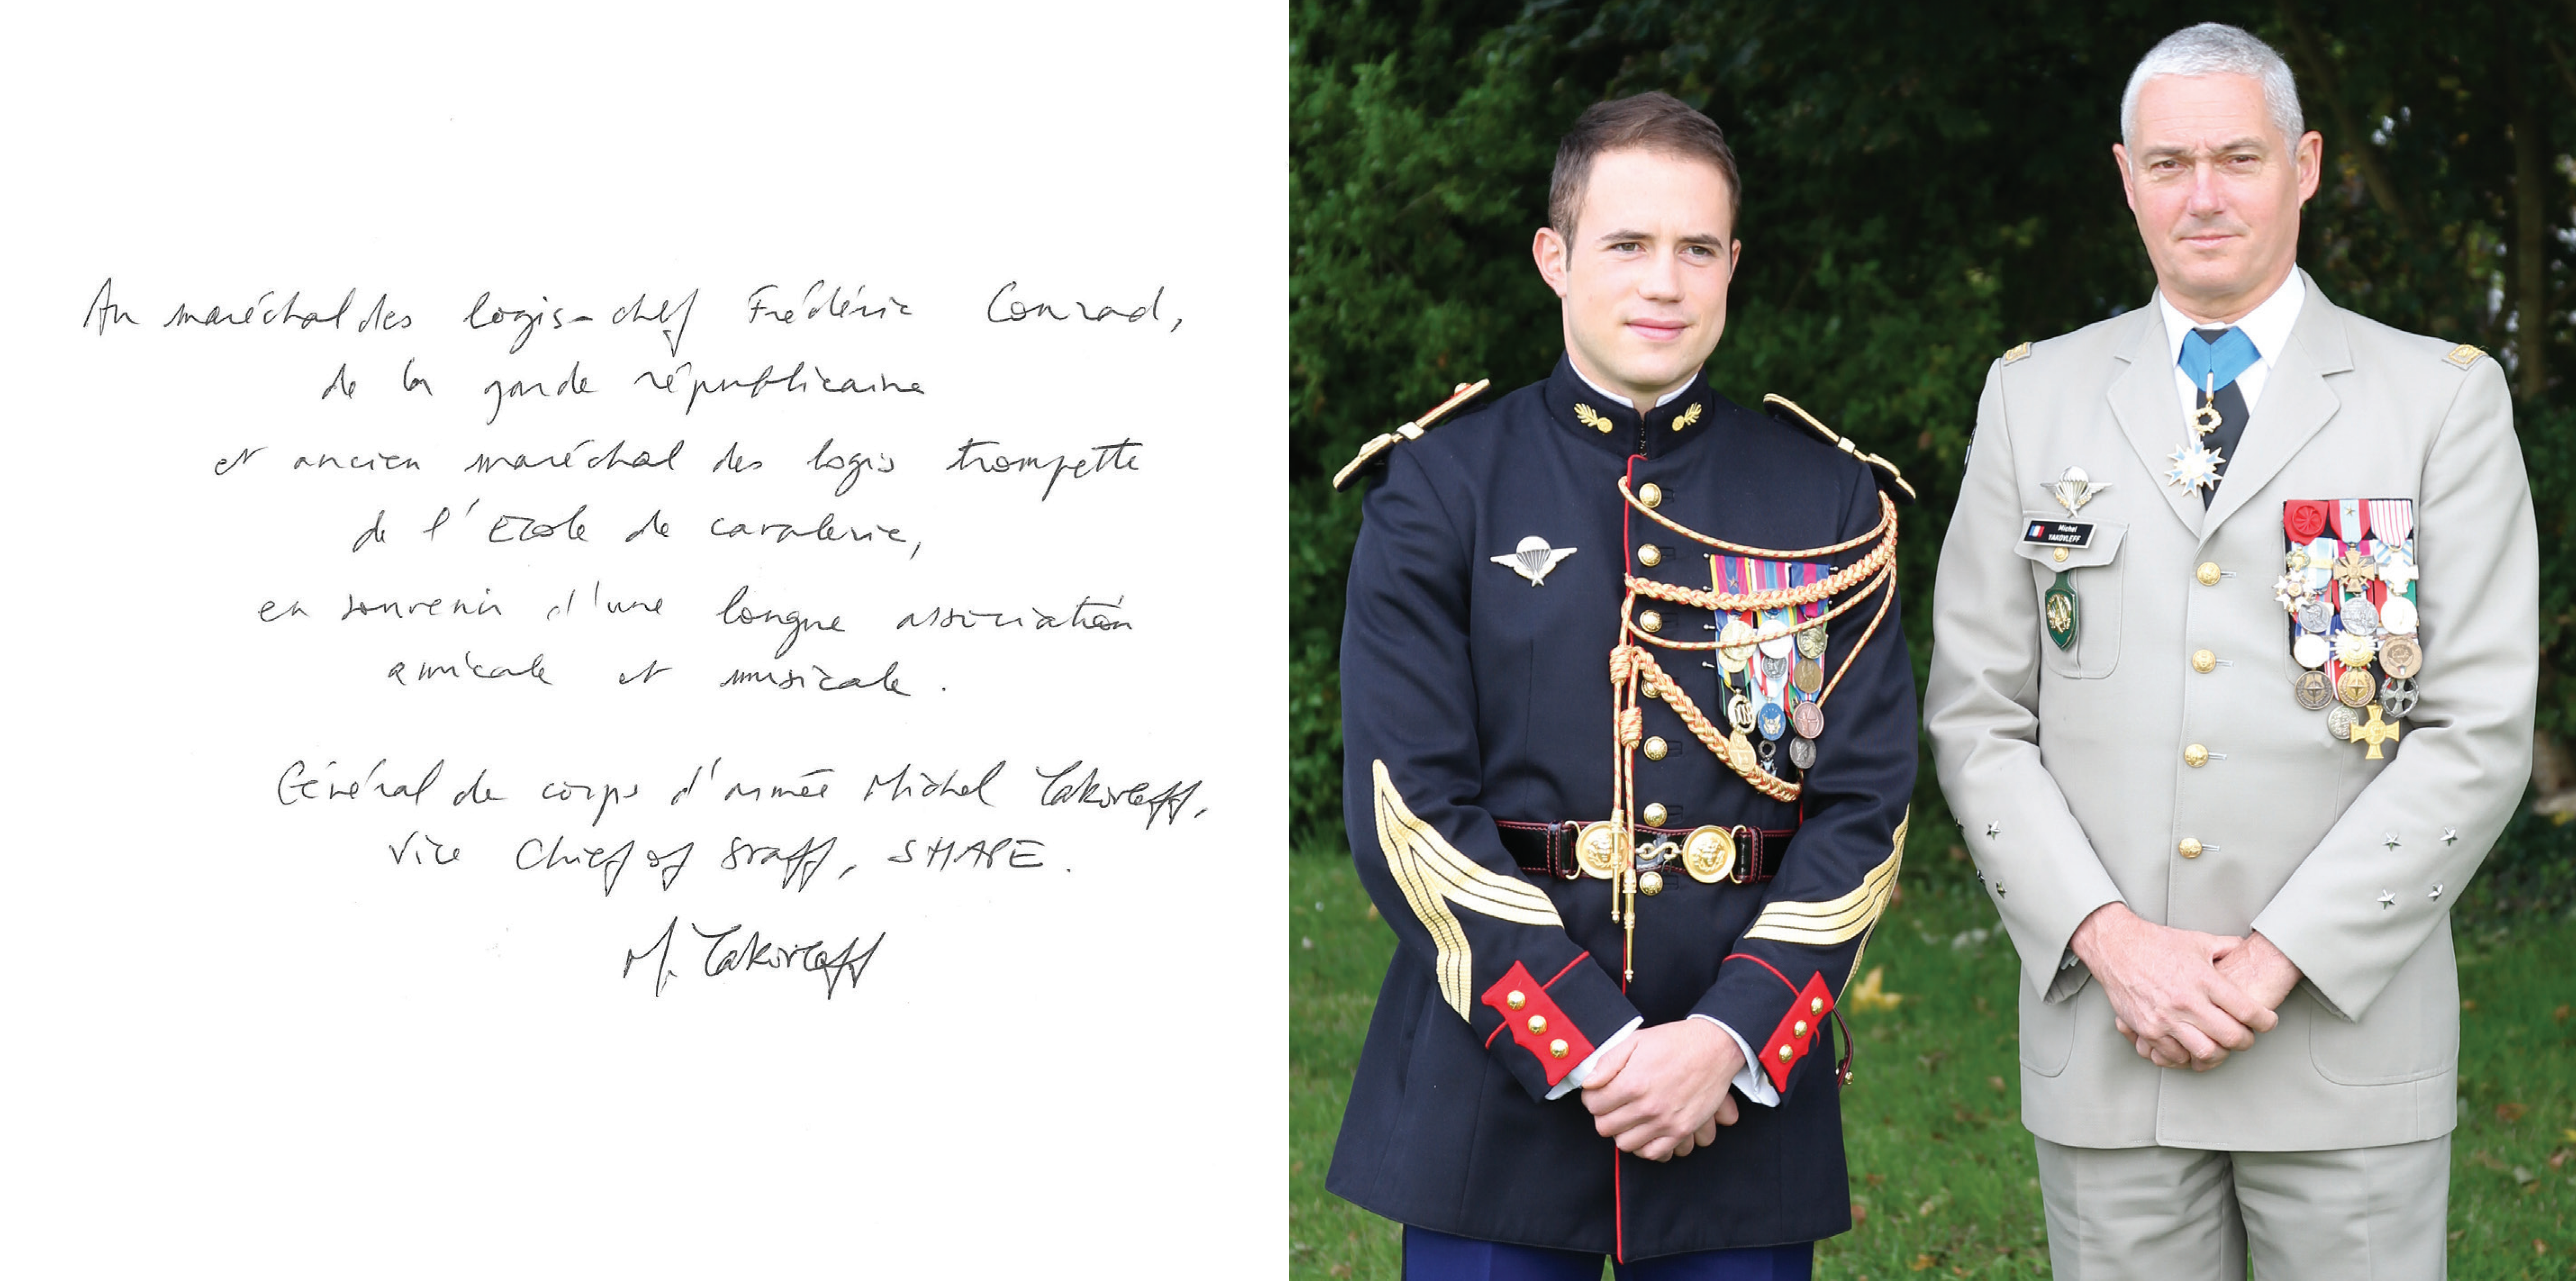 Au maréchal des logis-chef Frédéric Conrad,
de la garde républicaine
et ancien maréchal des logis trompette
de l'Ecole de cavalerie,
en souvenir d'une longue association
amicale et musicale.
Général de corps d'armée Michel Yakovleff,
Vice Chief of Staff, SHAPE.
M. Yakovleff
Michel
YAKOVLEFF